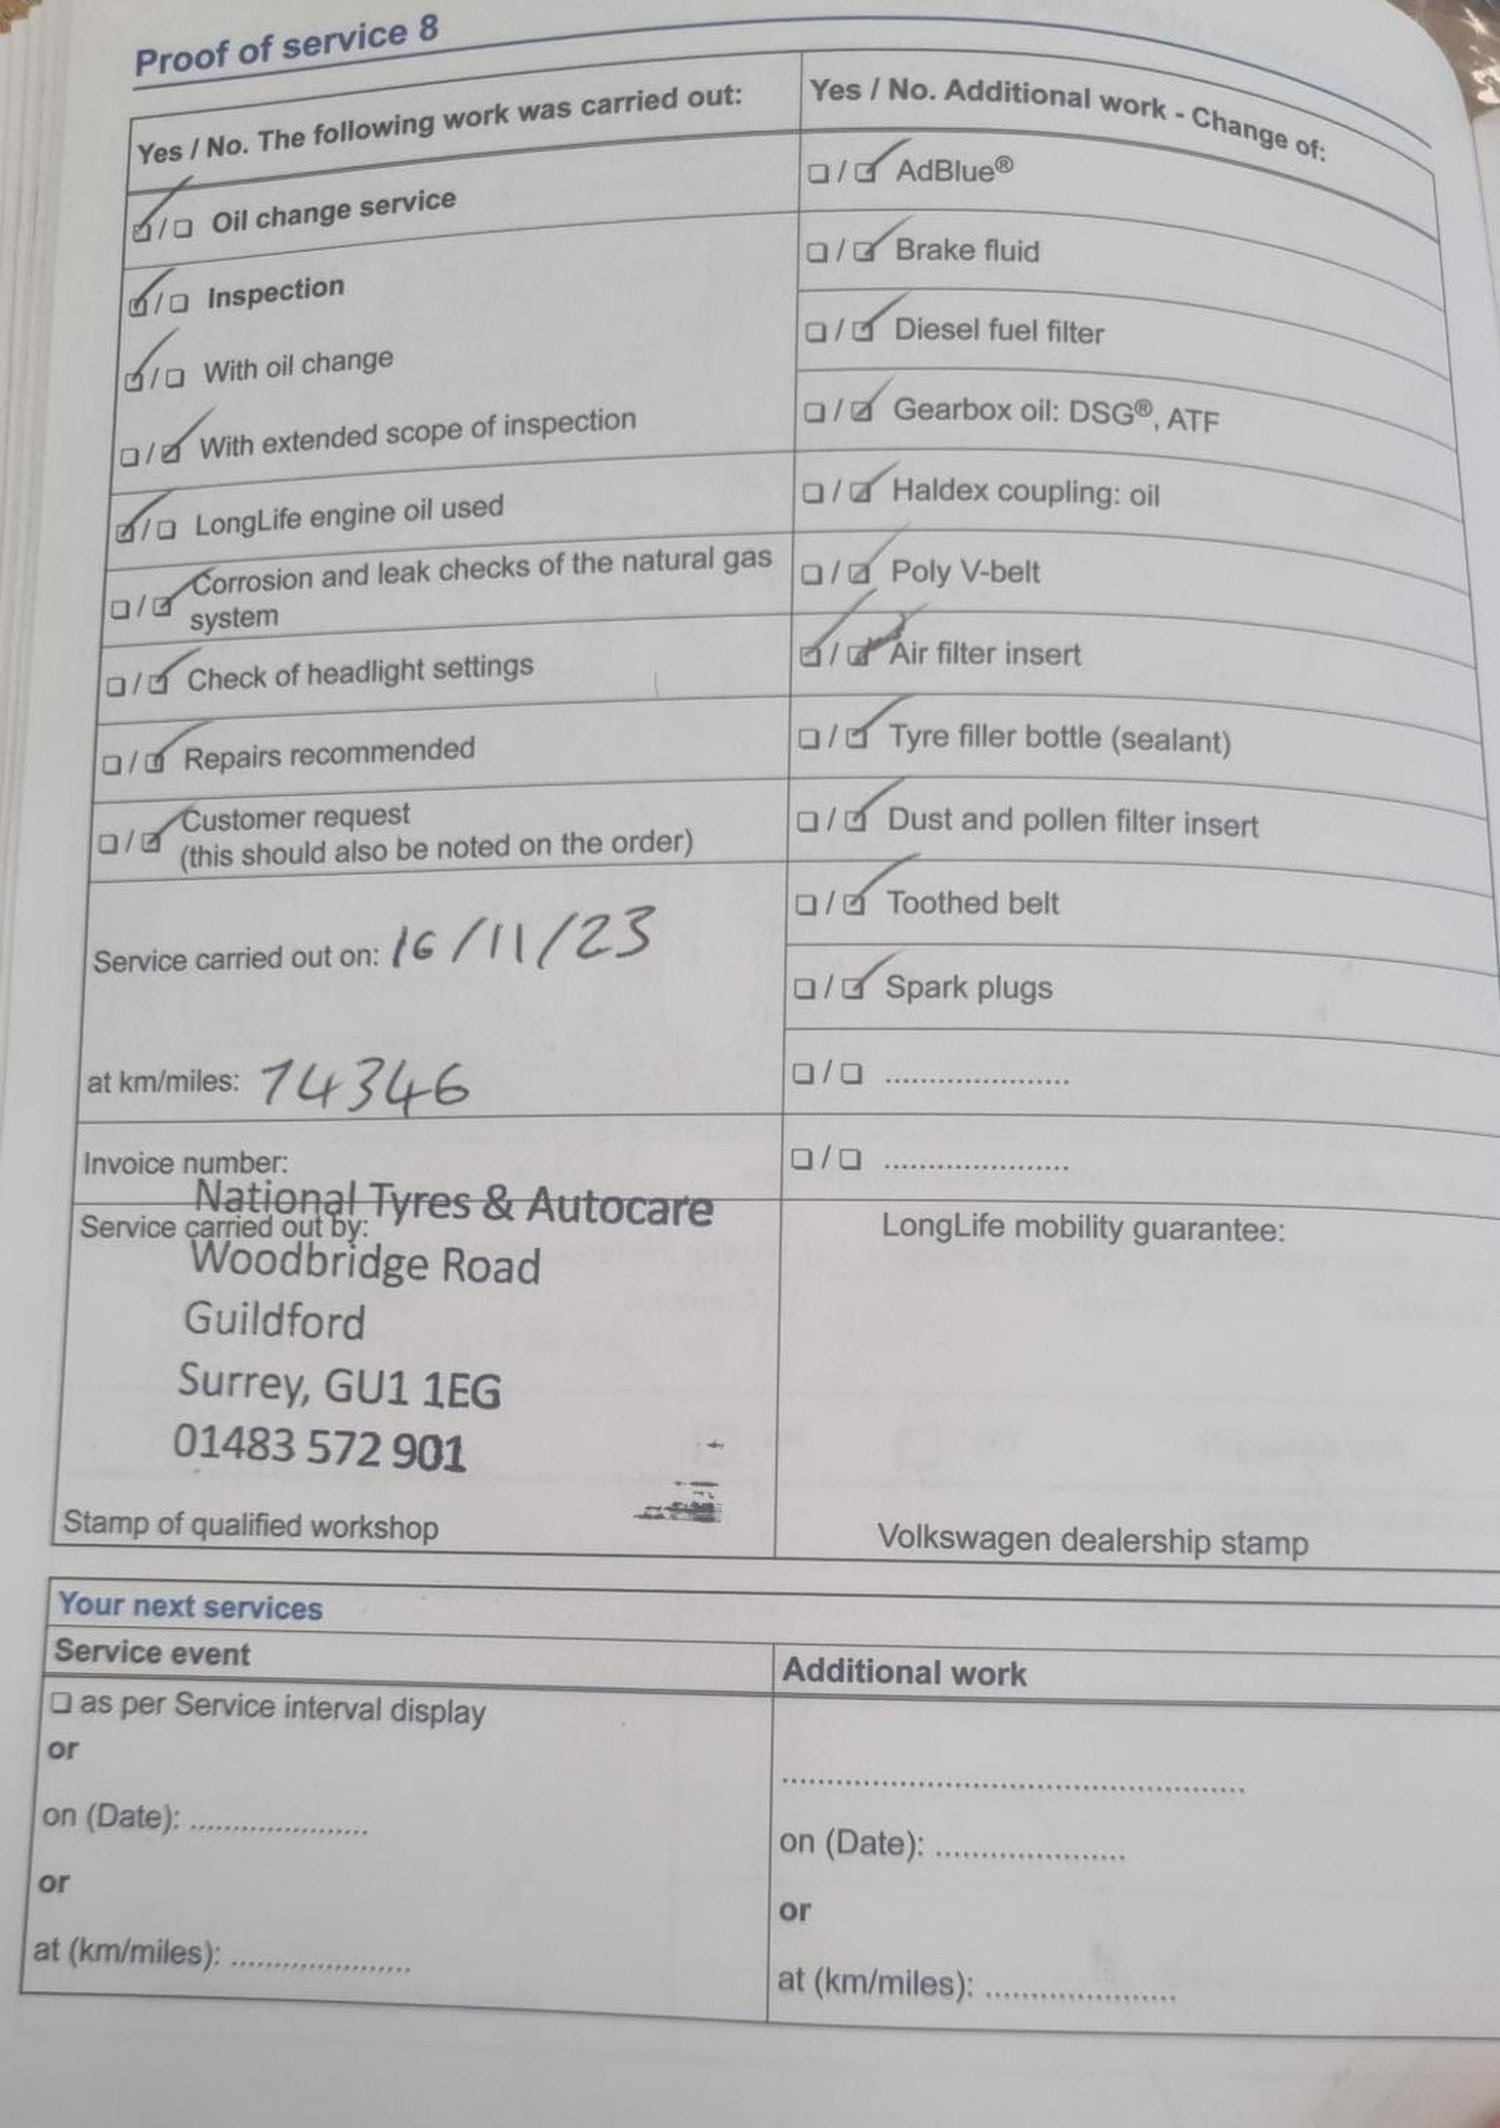 Proof of service 8
Yes / No. The following work was carried out:
☑ / ☐ Oil change service
☑ / ☐ Inspection
☑ / ☐ With oil change
☐ / ☑ With extended scope of inspection
☑ / ☐ LongLife engine oil used
☐ / ☑ Corrosion and leak checks of the natural gas
system
☐ / ☑ Check of headlight settings
☐ / ☑ Repairs recommended
☐ / ☑ Customer request
(this should also be noted on the order)
Service carried out on: 16/11/23
at km/miles: 74346
Invoice number:
National Tyres & Autocare
Service carried out by:
Woodbridge Road
Guildford
Surrey, GU1 1EG
01483 572 901
Stamp of qualified workshop
Yes / No. Additional work - Change of:
☐ / ☑ AdBlue®
☐ / ☑ Brake fluid
☐ / ☑ Diesel fuel filter
☐ / ☑ Gearbox oil: DSG®, ATF
☐ / ☑ Haldex coupling: oil
☐ / ☑ Poly V-belt
☑ / ☑ Air filter insert
☐ / ☑ Tyre filler bottle (sealant)
☐ / ☑ Dust and pollen filter insert
☐ / ☑ Toothed belt
☐ / ☑ Spark plugs
☐ / ☐ .....................
☐ / ☐ .....................
LongLife mobility guarantee:
Volkswagen dealership stamp
Your next services
Service event
☐ as per Service interval display
or
on (Date): .....................
or
at (km/miles): .....................
Additional work
..................................................
on (Date): .....................
or
at (km/miles): .....................